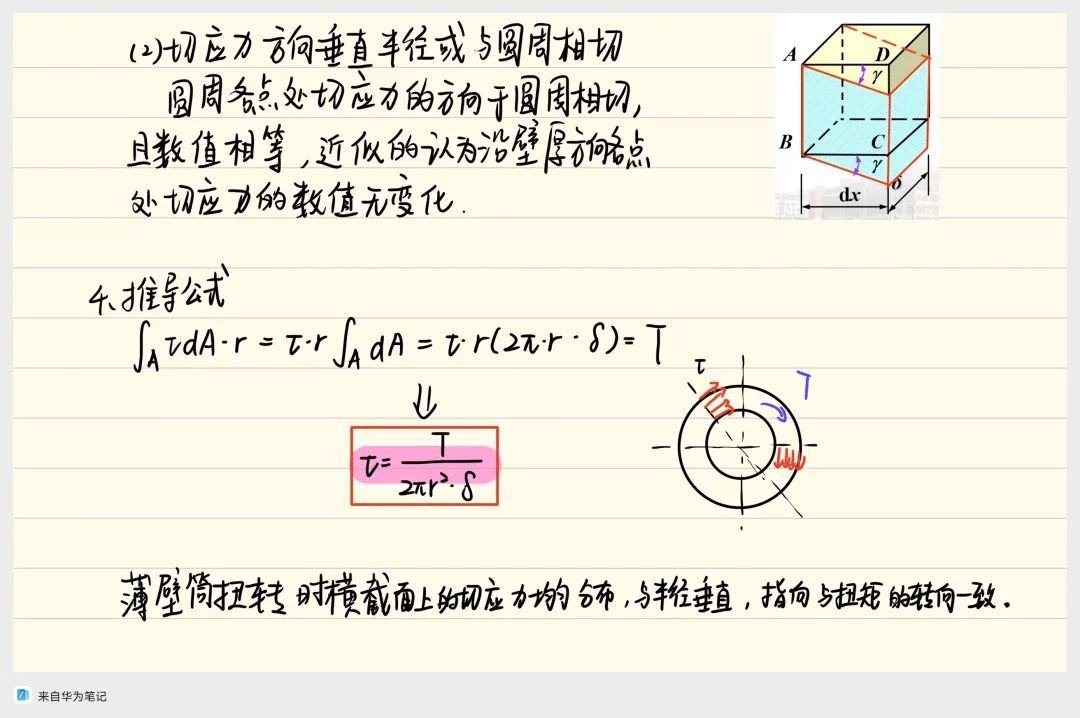 (2)切应力方向垂直半径或与圆周相切
圆周各点处切应力的方向于圆周相切,
且数值相等,近似的认为沿壁厚方向各点
处切应力的数值无变化.
A D γ
B C γ
δ
dx
4、推导公式
∫_A τdA·r = τ·r∫_A dA = τ·r(2π·r·δ)= T
⇓
τ= T/(2πr²·δ)
τ T
薄壁筒扭转时横截面上的切应力均匀分布,与半径垂直,指向与扭矩的转向一致.
来自华为笔记